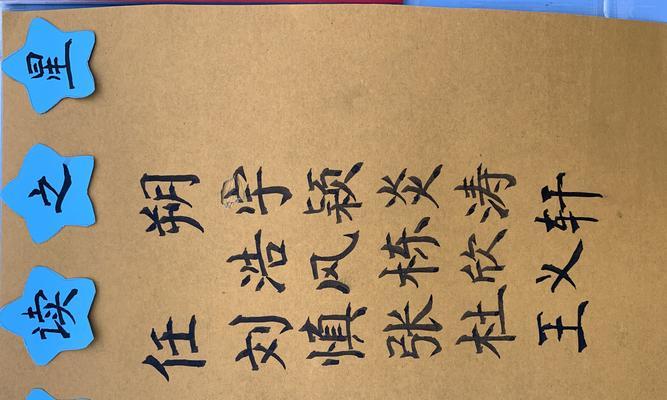 读之星
任朔
刘浩宇
慎风颖
张栋炎
杜欣涛
王义轩